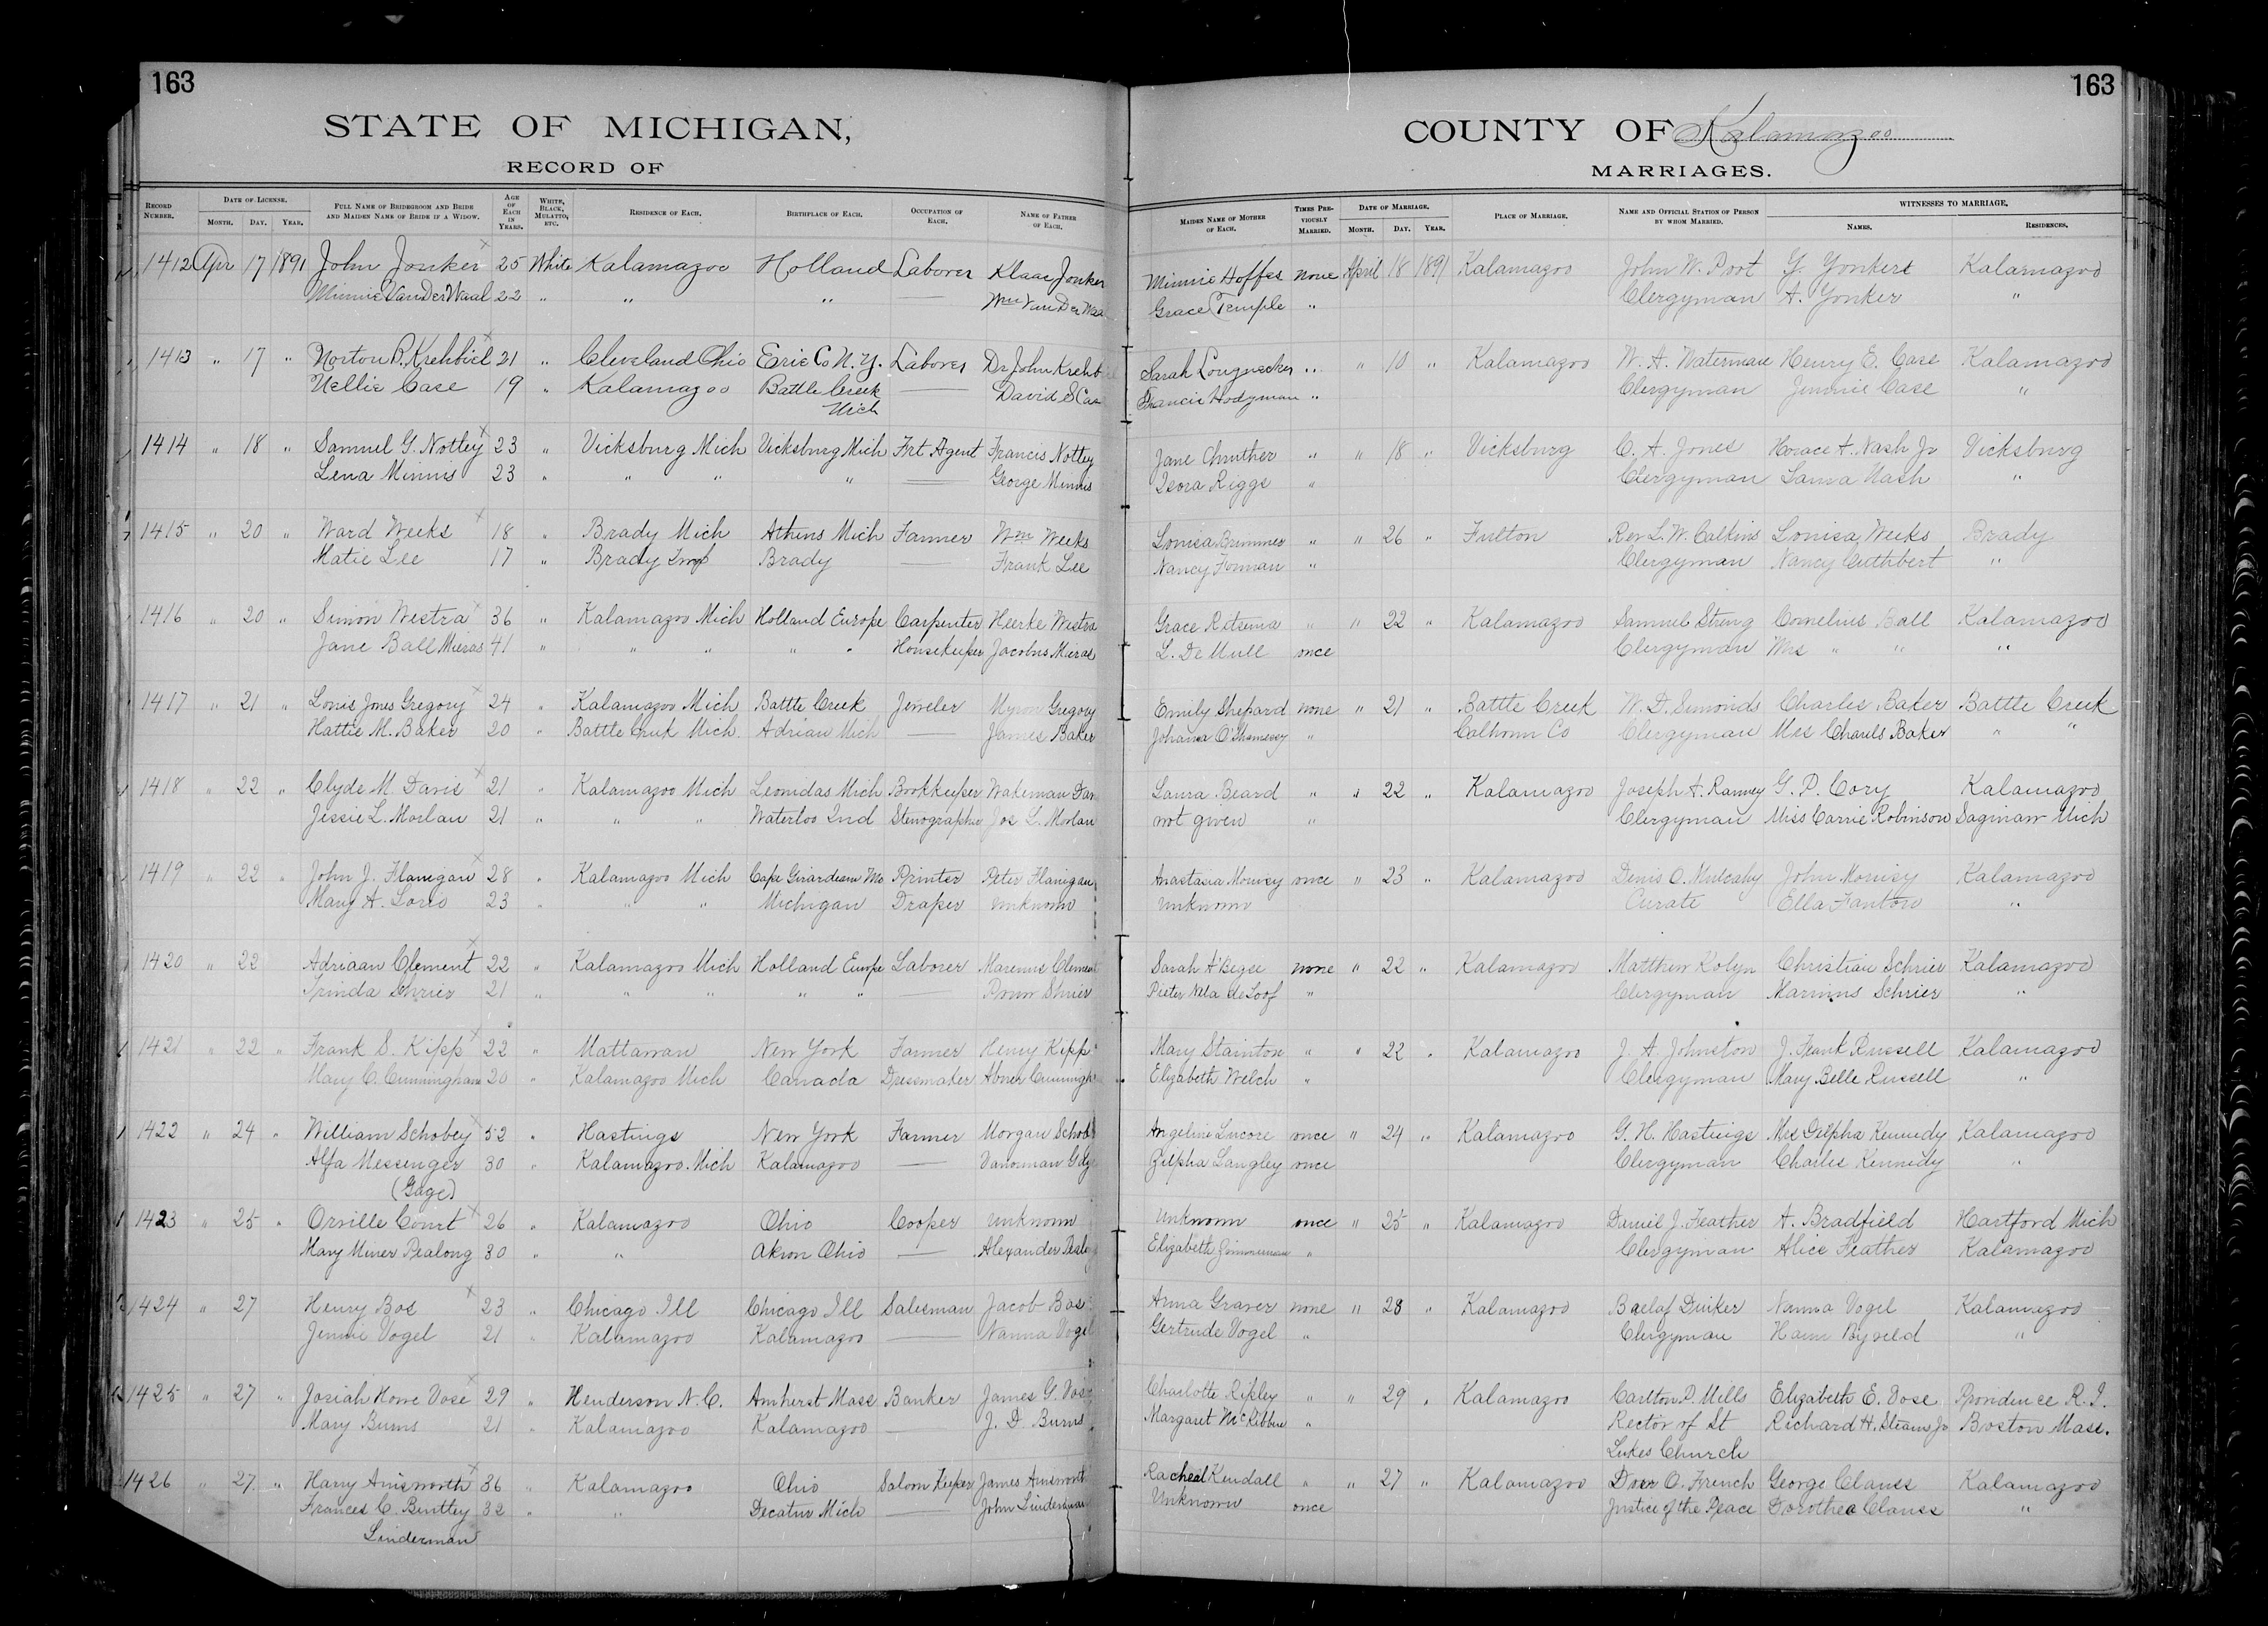 163
163
STATE OF MICHIGAN,
COUNTY OF Kalamazoo
RECORD OF
MARRIAGES.
RECORD NUMBER. DATE OF LICENSE. MONTH. DAY. YEAR. FULL NAME OF BRIDEGROOM AND BRIDE AND MAIDEN NAME OF BRIDE IF A WIDOW. AGE OF EACH IN YEARS. WHITE, BLACK, MULATTO, ETC. RESIDENCE OF EACH. BIRTHPLACE OF EACH. OCCUPATION OF EACH. NAME OF FATHER OF EACH. MAIDEN NAME OF MOTHER OF EACH. TIMES PREVIOUSLY MARRIED. DATE OF MARRIAGE. MONTH. DAY. YEAR. PLACE OF MARRIAGE. NAME AND OFFICIAL STATION OF PERSON BY WHOM MARRIED. WITNESSES TO MARRIAGE. NAMES. RESIDENCES.
1412 Apr 17 1891 John Jonker 25 White Kalamazoo Holland Laborer Klaas Jonker Minnie Hoffes none April 18 1891 Kalamazoo John W. Poot G. Yonkert Kalamazoo
Minnie Van Der Waal 22 " " " Wm Van Der Waa Grace Temple " Clergyman A. Yonker "
1413 " 17 " Norton B. Krehbiel 21 " Cleveland Ohio Erie Co N.Y. Laborer Dr John Krehb Sarah Longnecker " " 10 " Kalamazoo W. A. Waterman Henry E. Case Kalamazoo
Nellie Case 19 " Kalamazoo Battle Creek David S Cas Francis Hodgman " Clergyman Jennie Case "
Mich
1414 " 18 " Samuel G. Notley 23 " Vicksburg Mich Vicksburg Mich Frt Agent Francis Notley Jane Chruther " " 18 " Vicksburg C. A. Jones Horace A. Nash Jr Vicksburg
Lena Minnis 23 " " " " George Minnis Isora Riggs " Clergyman Laura Nash "
1415 " 20 " Ward Weeks 18 " Brady Mich Athens Mich Farmer Wm Weeks Louisa Brimmer " " 26 " Fulton Rev L. W. Calkins Louisa Weeks Brady
Matie Lee 17 " Brady Twp Brady Frank Lee Nancy Forman " Clergyman Nancy Cuthbert "
1416 " 20 " Simon Westra 36 " Kalamazoo Mich Holland Europe Carpenter Heerke Westra Grace Ritsema " " 22 " Kalamazoo Samuel Streng Cornelius Ball Kalamazoo
Jane Ball Mieras 41 " " " " " Housekeeper Jacobus Mieras L. De Mull once Clergyman Mrs " " "
1417 " 21 " Louis Jones Gregory 24 " Kalamazoo Mich Battle Creek Jeweler Myron Gregory Emily Shepard none " 21 " Battle Creek W. D. Simonds Charles Baker Battle Creek
Hattie M. Baker 20 " Battle Creek Mich. Adrian Mich James Baker Johanna O'Shanesey " Calhoun Co Clergyman Mrs Charels Baker " "
1418 " 22 " Clyde M. Davis 21 " Kalamazoo Mich Leonidas Mich Bookkeeper Wakeman Dav Laura Beard " " 22 " Kalamazoo Joseph A. Ranney G. P. Cory Kalamazoo
Jessie L. Morlan 21 " " " Waterloo Ind Stenographer Jos L. Morlan not given " Clergyman Miss Carrie Robinson Saginaw Mich
1419 " 22 " John J. Flanigan 28 " Kalamazoo Mich Cape Girardeau Mo Printer Peter Flanigan Anastasia Mouvey once " 23 " Kalamazoo Denis O. Mulcahy John Morrisy Kalamazoo
Mary A. Loris 23 " " " Michigan Draper Unknown Unknown Curate Ella Fanton "
1420 " 22 Adriaan Clement 22 " Kalamazoo Mich Holland Europe Laborer Marenus Clement Sarah A'Begee none " 22 " Kalamazoo Matthew Kolyn Christian Schrier Kalamazoo
Trinda Shrier 21 " " " " " Shrier Pieter Nela de Loof " Clergyman Marinus Schrier "
1421 " 22 " Frank S. Kipp 22 " Mattawan New York Farmer Henry Kipp Mary Stainton " " 22 " Kalamazoo J. A. Johnston J. Frank Russell Kalamazoo
Mary C. Cunningham 20 " Kalamazoo Mich Canada Dressmaker Abner Cunningh Elizabeth Welch " Clergyman Mary Belle Russell "
1422 " 24 " William Schobey 52 " Hastings New York Farmer Morgan Schob Angeline Lucore once " 24 " Kalamazoo G. H. Hastings Mrs Zilpha Kennedy Kalamazoo
Alfa Messenger 30 " Kalamazoo Mich Kalamazoo Vanorman Gage Zilpha Langley once Clergyman Charles Kennedy "
(Gage)
1423 " 25 " Orville Court 26 " Kalamazoo Ohio Cooper Unknown Unknown once " 25 " Kalamazoo Daniel J. Feather A. Bradfield Hartford Mich
Mary Miner Pealong 30 " " Akron Ohio Alexander Elizabeth Zimmerman " Clergyman Alice Feather Kalamazoo
1424 " 27 Henry Bos 23 " Chicago Ill Chicago Ill Salesman Jacob Bos Anna Graver none " 28 " Kalamazoo Baelof Duiker Nanna Vogel Kalamazoo
Jennie Vogel 21 " Kalamazoo Kalamazoo Nanna Vogel Gertrude Vogel " Clergyman Harm Byveld "
1425 " 27 " Josiah Howe Vose 29 " Henderson N.C. Amherst Mass Banker James G. Vose Charlotte Ripley " " 29 " Kalamazoo Carlton P. Mills Elizabeth E. Vose Providence R.I.
Mary Burns 21 " Kalamazoo Kalamazoo J. D. Burns Margaret McKibben " Rector of St Richard H. Stearns Jr Boston Mass.
Lukes Church
1426 " 27 " Harry Ainsworth 36 " Kalamazoo Ohio Saloon Keeper James Ainsworth Racheal Kendall " " 27 " Kalamazoo Dorr O. French George Clauss Kalamazoo
Frances C. Bentley 32 " " Decatur Mich John Linderman Unknown once Justice of the Peace Dorothea Clauss "
Linderman